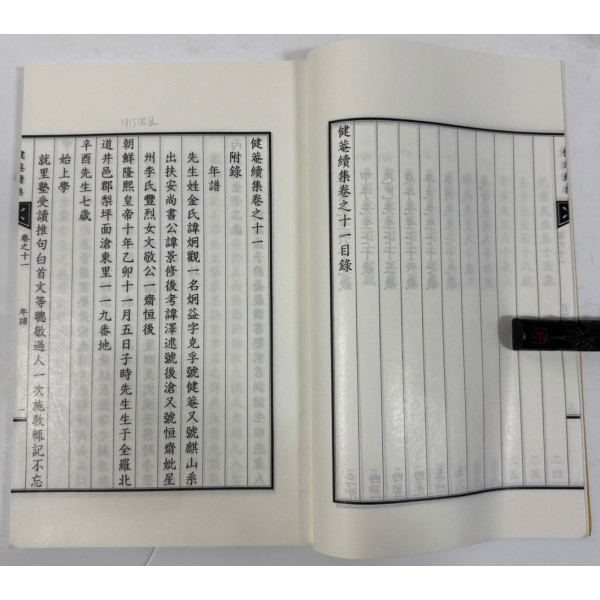 健菴續集卷之十一目錄
1915년생
健菴續集卷之十一
附錄
年譜
先生姓金氏諱炯觀一名炯益字克孚號健菴又號麒山系
出扶安尚書公諱景修後考諱澤述號後滄又號恒齋妣星
州李氏豐烈女文敬公一齋恒後
朝鮮隆熙皇帝十年乙卯十一月五日子時先生生于全羅北
道井邑郡梨坪面滄東里一一九番地
辛酉先生七歲
始上學
就里塾受讀推句白首文等聰敏過人一次施教輒記不忘
健菴續集
卷之十一
年譜
一